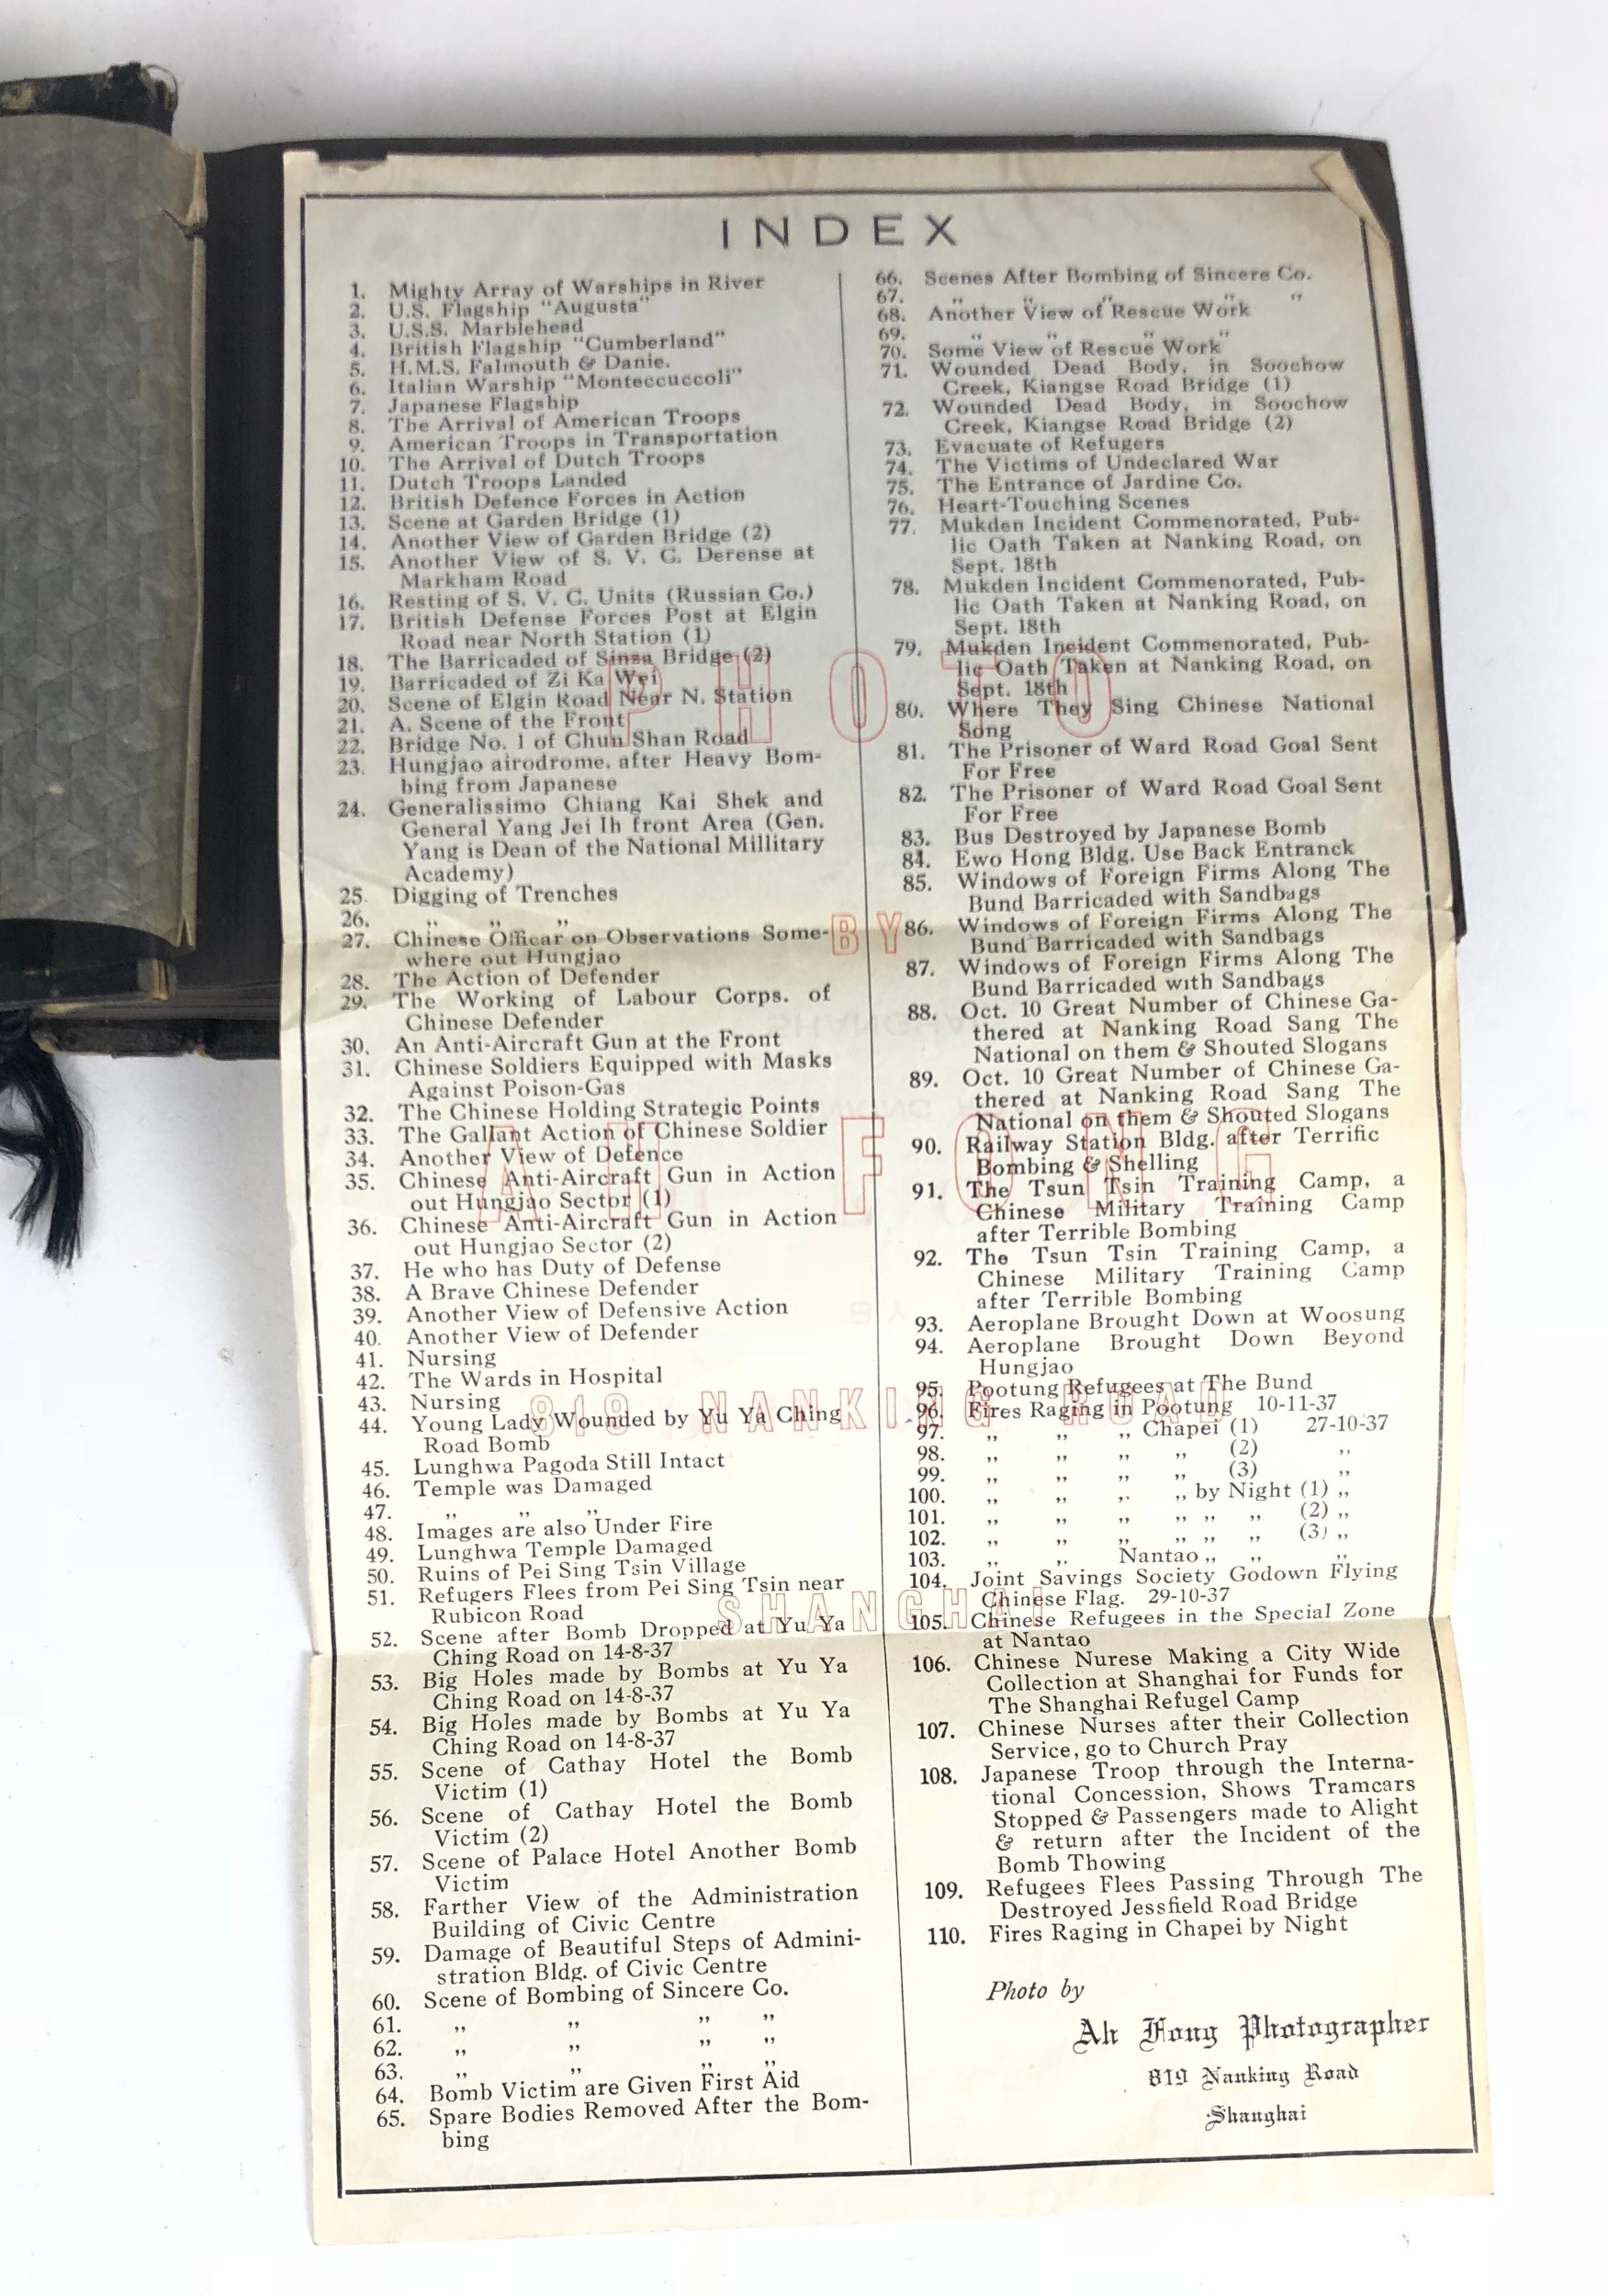 INDEX
1. Mighty Array of Warships in River
2. U.S. Flagship "Augusta"
3. U.S.S. Marblehead
4. British Flagship "Cumberland"
5. H.M.S. Falmouth & Danie.
6. Italian Warship "Monteccuccoli"
7. Japanese Flagship
8. The Arrival of American Troops
9. American Troops in Transportation
10. The Arrival of Dutch Troops
11. Dutch Troops Landed
12. British Defence Forces in Action
13. Scene at Garden Bridge (1)
14. Another View of Garden Bridge (2)
15. Another View of S. V. C. Derense at
Markham Road
16. Resting of S. V. C. Units (Russian Co.)
17. British Defense Forces Post at Elgin
Road near North Station (1)
18. The Barricaded of Sinza Bridge (2)
19. Barricaded of Zi Ka Wei
20. Scene of Elgin Road Near N. Station
21. A. Scene of the Front
22. Bridge No. 1 of Chun Shan Road
23. Hungjao airodrome, after Heavy Bom-
bing from Japanese
24. Generalissimo Chiang Kai Shek and
General Yang Jei Ih front Area (Gen.
Yang is Dean of the National Millitary
Academy)
25. Digging of Trenches
26. ,, ,, ,,
27. Chinese Officar on Observations Some-
where out Hungjao
28. The Action of Defender
29. The Working of Labour Corps. of
Chinese Defender
30. An Anti-Aircraft Gun at the Front
31. Chinese Soldiers Equipped with Masks
Against Poison-Gas
32. The Chinese Holding Strategic Points
33. The Gallant Action of Chinese Soldier
34. Another View of Defence
35. Chinese Anti-Aircraft Gun in Action
out Hungjao Sector (1)
36. Chinese Anti-Aircraft Gun in Action
out Hungjao Sector (2)
37. He who has Duty of Defense
38. A Brave Chinese Defender
39. Another View of Defensive Action
40. Another View of Defender
41. Nursing
42. The Wards in Hospital
43. Nursing
44. Young Lady Wounded by Yu Ya Ching
Road Bomb
45. Lunghwa Pagoda Still Intact
46. Temple was Damaged
47. ,, ,, ,,
48. Images are also Under Fire
49. Lunghwa Temple Damaged
50. Ruins of Pei Sing Tsin Village
51. Refugers Flees from Pei Sing Tsin near
Rubicon Road
52. Scene after Bomb Dropped at Yu Ya
Ching Road on 14-8-37
53. Big Holes made by Bombs at Yu Ya
Ching Road on 14-8-37
54. Big Holes made by Bombs at Yu Ya
Ching Road on 14-8-37
55. Scene of Cathay Hotel the Bomb
Victim (1)
56. Scene of Cathay Hotel the Bomb
Victim (2)
57. Scene of Palace Hotel Another Bomb
Victim
58. Farther View of the Administration
Building of Civic Centre
59. Damage of Beautiful Steps of Admini-
stration Bldg. of Civic Centre
60. Scene of Bombing of Sincere Co.
61. ,, ,, ,, ,,
62. ,, ,, ,, ,,
63. ,, ,, ,, ,,
64. Bomb Victim are Given First Aid
65. Spare Bodies Removed After the Bom-
bing
66. Scenes After Bombing of Sincere Co.
67. ,, ,, ,, ,, ,,
68. Another View of Rescue Work
69. ,, ,, ,, ,,
70. Some View of Rescue Work
71. Wounded Dead Body, in Soochow
Creek, Kiangse Road Bridge (1)
72. Wounded Dead Body, in Soochow
Creek, Kiangse Road Bridge (2)
73. Evacuate of Refugers
74. The Victims of Undeclared War
75. The Entrance of Jardine Co.
76. Heart-Touching Scenes
77. Mukden Incident Commenorated, Pub-
lic Oath Taken at Nanking Road, on
Sept. 18th
78. Mukden Incident Commenorated, Pub-
lic Oath Taken at Nanking Road, on
Sept. 18th
79. Mukden Incident Commenorated, Pub-
lic Oath Taken at Nanking Road, on
Sept. 18th
80. Where They Sing Chinese National
Song
81. The Prisoner of Ward Road Goal Sent
For Free
82. The Prisoner of Ward Road Goal Sent
For Free
83. Bus Destroyed by Japanese Bomb
84. Ewo Hong Bldg. Use Back Entranck
85. Windows of Foreign Firms Along The
Bund Barricaded with Sandbags
86. Windows of Foreign Firms Along The
Bund Barricaded with Sandbags
87. Windows of Foreign Firms Along The
Bund Barricaded with Sandbags
88. Oct. 10 Great Number of Chinese Ga-
thered at Nanking Road Sang The
National on them & Shouted Slogans
89. Oct. 10 Great Number of Chinese Ga-
thered at Nanking Road Sang The
National on them & Shouted Slogans
90. Railway Station Bldg. after Terrific
Bombing & Shelling
91. The Tsun Tsin Training Camp, a
Chinese Military Training Camp
after Terrible Bombing
92. The Tsun Tsin Training Camp, a
Chinese Military Training Camp
after Terrible Bombing
93. Aeroplane Brought Down at Woosung
94. Aeroplane Brought Down Beyond
Hungjao
95. Pootung Refugees at The Bund
96. Fires Raging in Pootung 10-11-37
97. ,, ,, ,, Chapei (1) 27-10-37
98. ,, ,, ,, ,, (2) ,,
99. ,, ,, ,, ,, (3) ,,
100. ,, ,, ,, ,, by Night (1) ,,
101. ,, ,, ,, ,, ,, ,, (2) ,,
102. ,, ,, ,, ,, ,, ,, (3) ,,
103. ,, ,, Nantao ,, ,, ,,
104. Joint Savings Society Godown Flying
Chinese Flag. 29-10-37
105. Chinese Refugees in the Special Zone
at Nantao
106. Chinese Nurese Making a City Wide
Collection at Shanghai for Funds for
The Shanghai Refugel Camp
107. Chinese Nurses after their Collection
Service, go to Church Pray
108. Japanese Troop through the Interna-
tional Concession, Shows Tramcars
Stopped & Passengers made to Alight
& return after the Incident of the
Bomb Thowing
109. Refugees Flees Passing Through The
Destroyed Jessfield Road Bridge
110. Fires Raging in Chapei by Night
Photo by
Ah Fong Photographer
819 Nanking Road
Shanghai
PHOTO
BY
AH FONG
819 NANKING ROAD
SHANGHAI